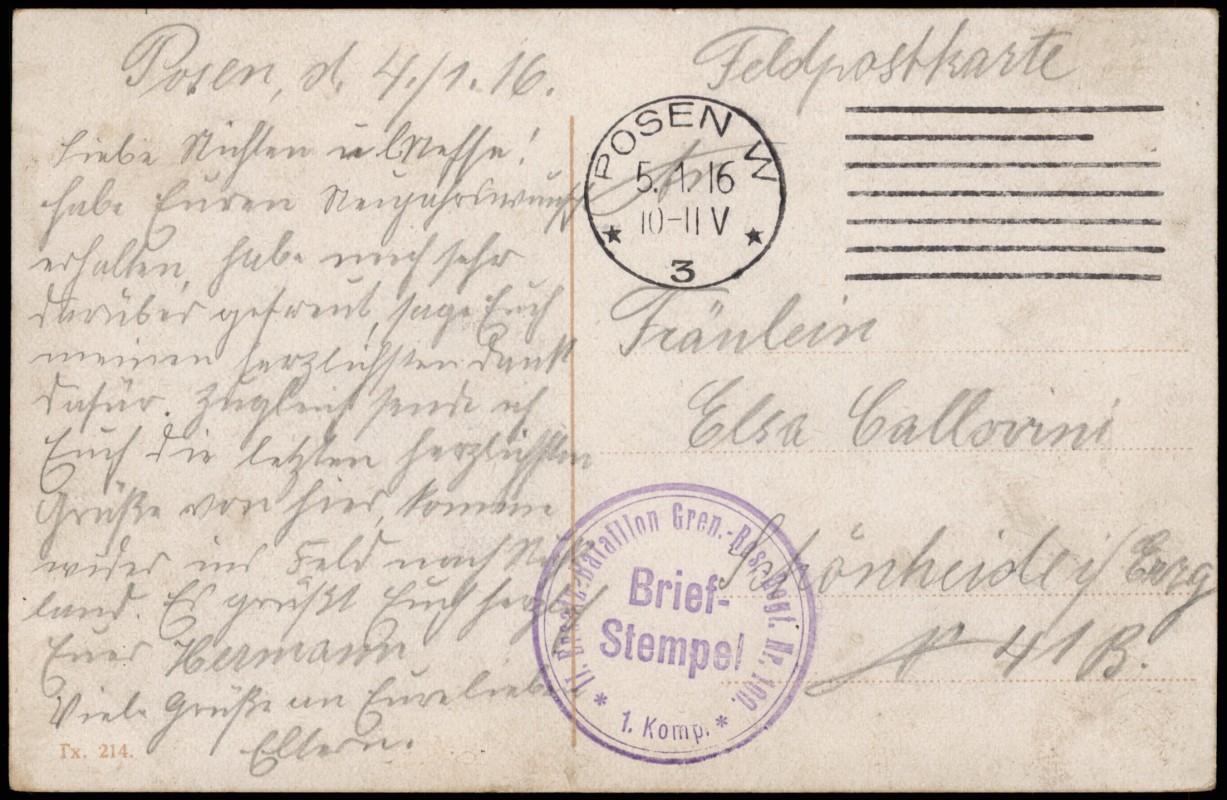 Posen, d. 4./1. 16.
Liebe Nichten u Neffe!
habe Euren Neujahrswunsch
erhalten, habe mich sehr
darüber gefreut, sage Euch
meinen herzlichsten Dank
dafür. Zugleich sende ich
Euch die letzten herzlichsten
Grüße von hier, komme
wieder ins Feld nach Ruß
land. Es grüßt Euch herzlich
Euer Hermann
Viele Grüße an Eure lieben
Eltern.
Гх. 214.
Feldpostkarte
POSEN W
5. 1. 16
10-11 V
3
An
Fräulein
Elsa Callovini
Schönheide i/ Erzg
№ 41 B.
II. Ersatz-Bataillon Gren.-Res.-Regt. Nr. 100.
Brief-
Stempel
* 1. Komp. *